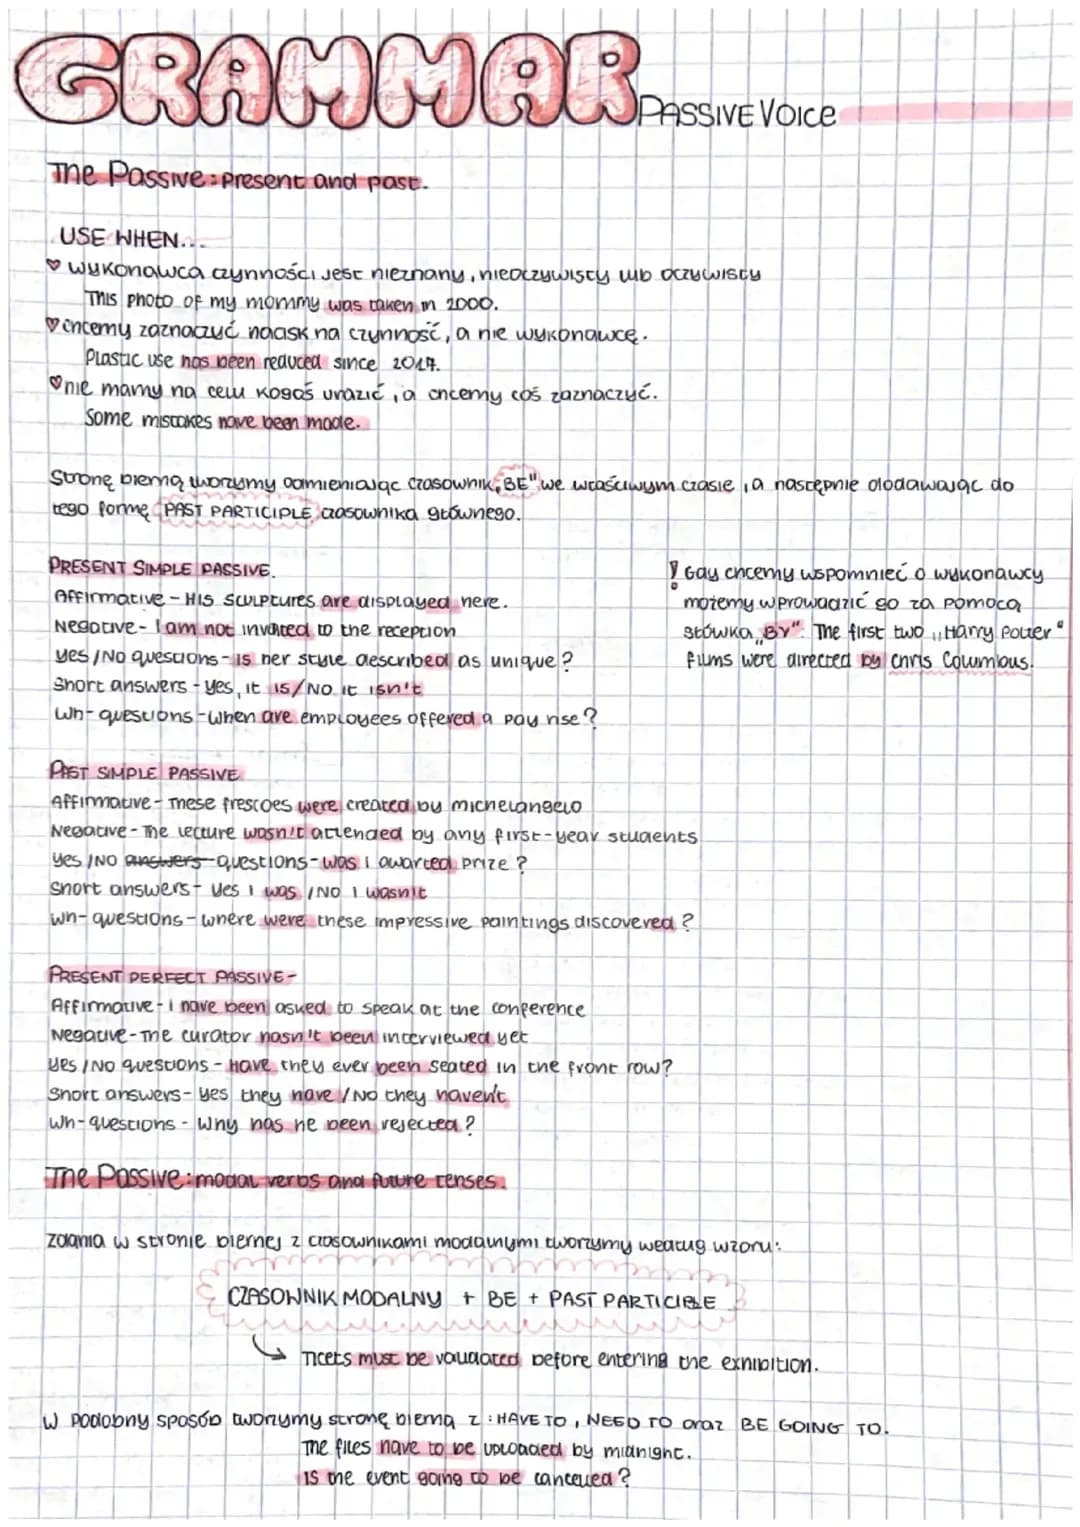 GRAMMAR PASSIVE VOICE
The Passive: present and past.
USE WHEN...
♡ wykonawca czynności jest nieznany, nieoczywisty lub oczywisty
This photo of my mommy was taken in 2000.
♡ chcemy zaznaczyć nacisk na czynność, a nie wykonawcę.
Plastic use has been reduced since 2017.
♡ nie mamy na celu kogoś urazić, a chcemy coś zaznaczyć.
Some mistakes have been made.
Stronę bierną tworzymy odmieniając czasownik „BE" we właściwym czasie, a następnie dodawając do
tego formę PAST PARTICIPLE czasownika głównego.
PRESENT SIMPLE PASSIVE.
Affirmative - His sculptures are displayed here.
Negative - I am not invited to the reception
Yes/No questions - is her style described as unique?
Short answers - yes, it is/No it isn't
Wh- questions - when are employees offered a pay rise?
! Gdy chcemy wspomnieć o wykonawcy
możemy wprowadzić go za pomocą
słówka „BY". The first two „Harry Potter"
films were directed by Chris Columbous.
PAST SIMPLE PASSIVE
Affirmative - These frescoes were created by michelangelo
Negative - The lecture wasn't attended by any first-year students
Yes/No answers questions - was I awarted prize?
Short answers - Yes I was / No I wasn't
Wh- questions - where were these impressive paintings discovered?
PRESENT PERFECT PASSIVE -
Affirmative - I have been asked to speak at the conference
Negative - The curator hasn't been interviewed yet
Yes/No questions - Have they ever been seated in the front row?
Short answers - Yes they have / No they haven't
Wh- questions - Why has he been rejected?
The Passive: modal verbs and future tenses.
Zdania w stronie biernej z czasownikami modalnymi tworzymy według wzoru:
CZASOWNIK MODALNY + BE + PAST PARTICIPLE
Ticets must be validated before entering the exhibition.
W podobny sposób tworzymy stronę bierną z: HAVE TO, NEED TO oraz BE GOING TO.
The files have to be uploaded by midnight.
Is the event going to be cancelled?